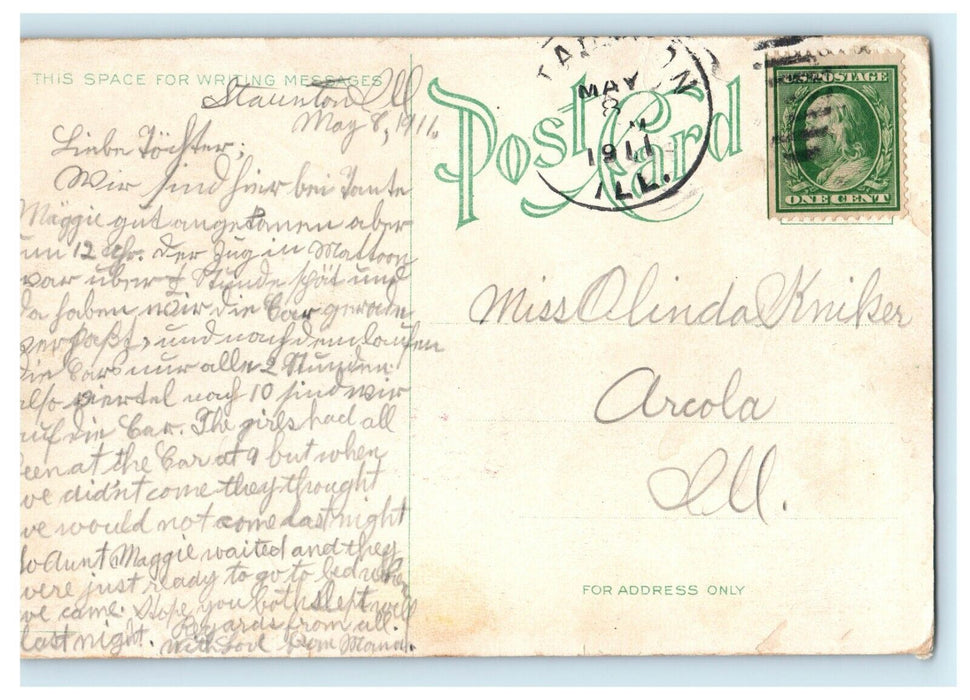 THIS SPACE FOR WRITING MESSAGES
Staunton Ill
May 8, 1911.
Liebe Töchter;
Wir sind hier bei Tante
Maggie gut angekomen aber
um 12 Uhr. Der Zug in Mattoon
war über ½ Stunde spät und
da haben wir die Car gerade
verpaßt, und nachdem laufen
die Cars nur alle 2 Stunden
also viertel nach 10 sind wir
auf die Car. The girls had all
been at the Car at 9 but when
we did'nt come they thought
we would not come last night
so Aunt Maggie waited and they
were just ready to go to bed when
we came. Hope you both slept well
last night. Regards from all.
With Love from Mama.
Post Card
MAY
8
1911
ILL.
U.S. POSTAGE
ONE CENT
Miss Olinda Kniker
Arcola
Ill.
FOR ADDRESS ONLY